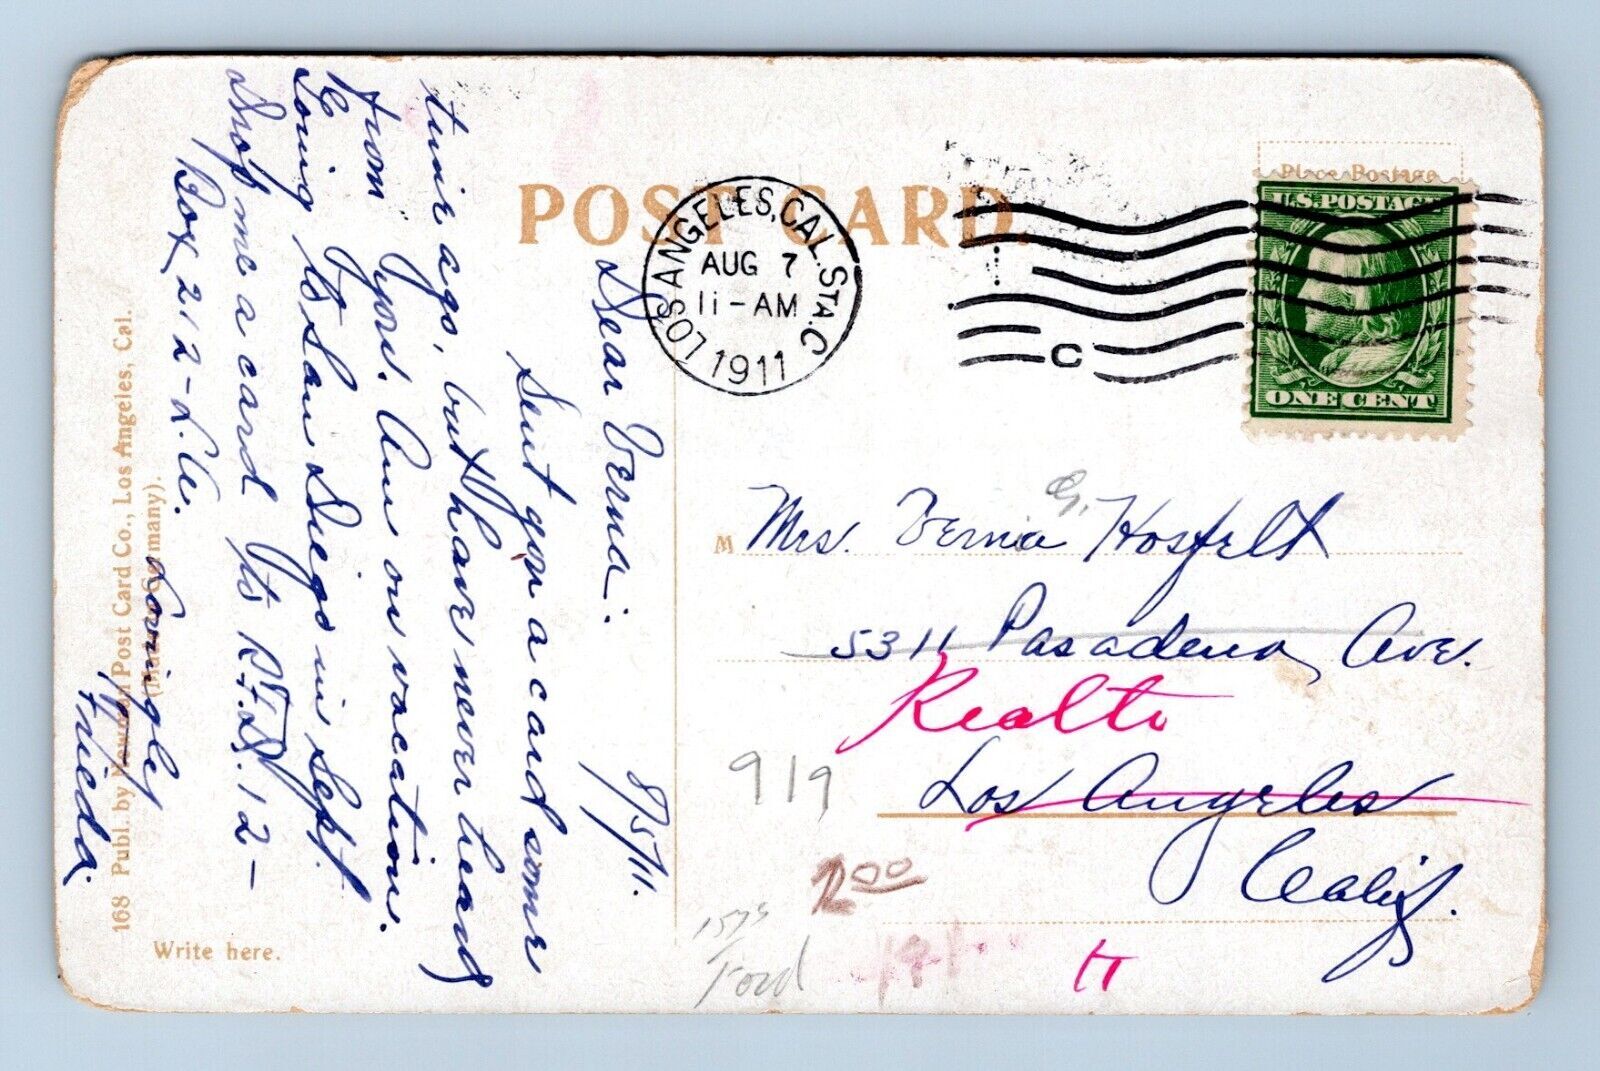 POST CARD.
Place Postage
U.S. POSTAGE
ONE CENT
LOS ANGELES, CAL. STA. C
AUG 7
11-AM
1911
C
8/5/11.
Dear Verna:
Sent you a card some
time ago, but have never heard
from you. Am on vacation.
Going to San Diego in Sept.
Drop me a card to R.F.D. 12-
Box 212-L.A.
Lovingly
Frieda.
M Mrs. Verna G. Hosfelt
5311 Pasadena Ave.
Realto
Los Angeles
Calif.
919
2.00
1575
Ford
191
168 Publ. by Newman Post Card Co., Los Angeles, Cal.
(Made in Germany).
Write here.